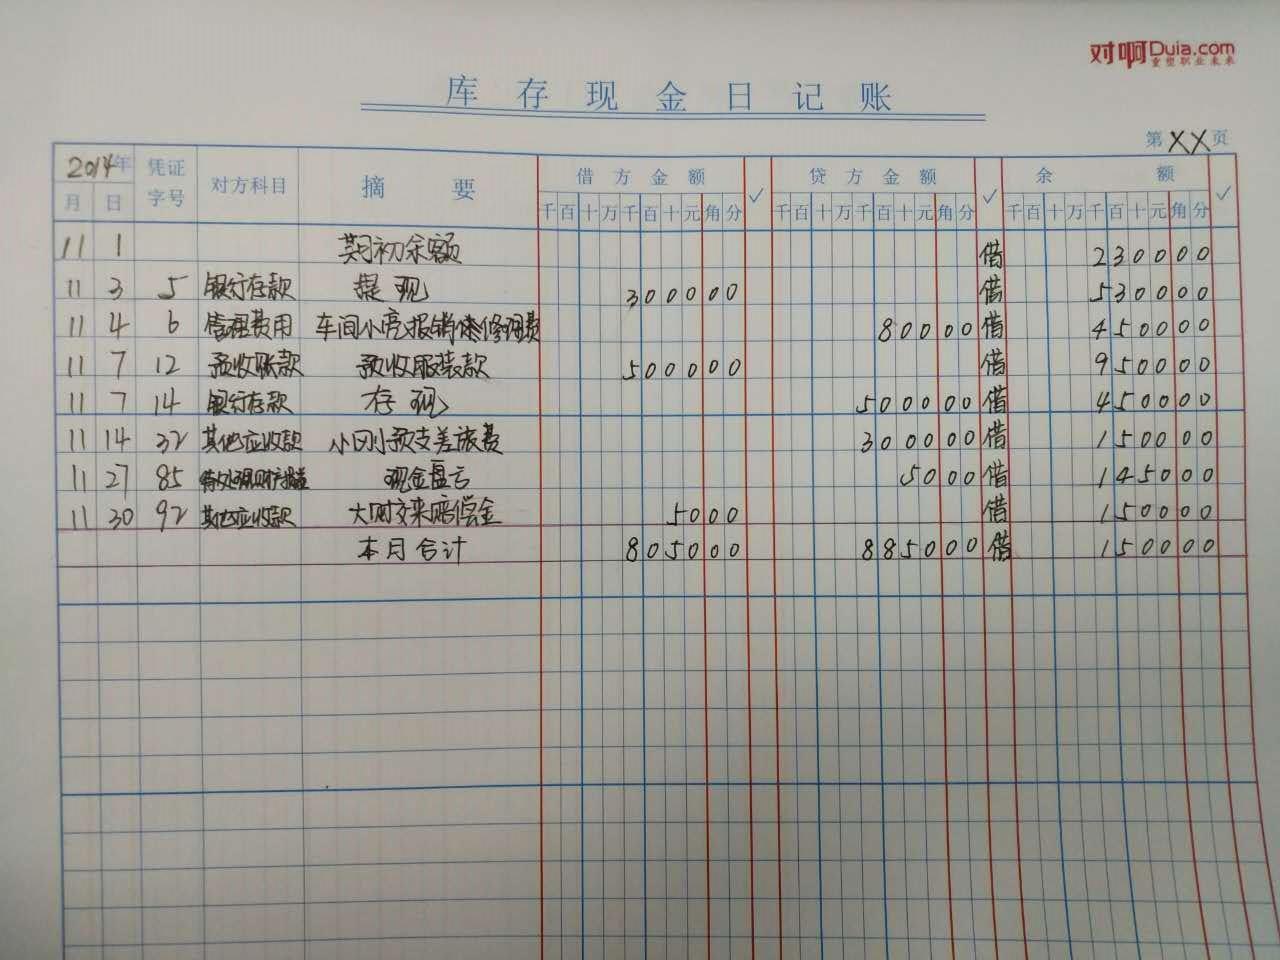 对啊Duia.com
重塑职业未来
库存现金日记账
第XX页
2014年 凭证 字号 对方科目 摘要 借方金额 ✓ 贷方金额 ✓ 余额 ✓
月 日 千百十万千百十元角分 千百十万千百十元角分 千百十万千百十元角分
11 1 期初余额 借 230000
11 3 5 银行存款 提现 300000 借 530000
11 4 6 管理费用 车间小亮报销修理费 80000 借 450000
11 7 12 预收账款 预收服装款 500000 借 950000
11 7 14 银行存款 存现 500000 借 450000
11 14 32 其他应收款 小刚预支差旅费 300000 借 150000
11 27 85 待处理财产损溢 现金盘亏 5000 借 145000
11 30 92 其他应收款 大刚交来赔偿金 5000 借 150000
本月合计 805000 885000 借 150000